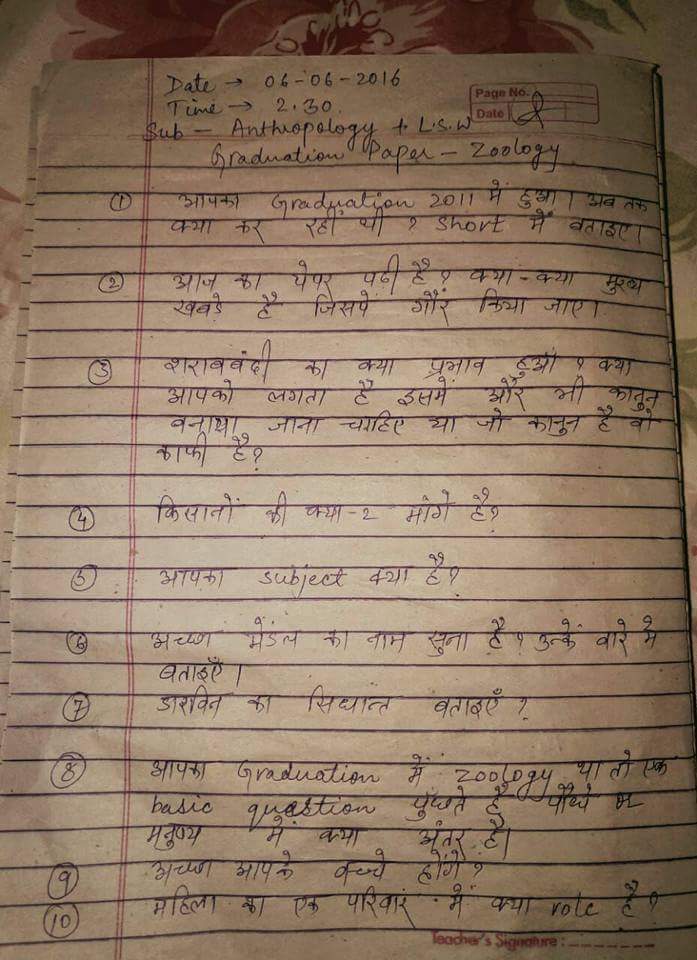 Date → 06-06-2016
Time → 2.30.
Page No.
Date
Sub - Anthropology + L.S.W
Graduation Paper - Zoology
① आपका Graduation 2011 में हुआ। अब तक
क्या कर रही थी ? short में बताइए।
② आज का पेपर पढ़ी है ? क्या-क्या मुख्य
खबड़े है जिसपे गौर किया जाए।
③ शराबबंदी का क्या प्रभाव हुआ ? क्या
आपको लगता है इसमें और भी कानुन
बनाया जाना चाहिए या जो कानुन है वो
काफी है?
④ किसानों की क्या-2 मांगे है?
⑤ आपका subject क्या है?
⑥ अच्छा मेंडल का नाम सुना है ? उनके बारे मे
बताइएँ।
⑦ डारविन का सिधान्त बताइएँ ?
⑧ आपका Graduation में zoology था तो एक
basic question पुछते है पौधे व
मनुष्य में क्या अंतर है।
⑨ अच्छा आपके बच्चे होंगे ?
⑩ महिला का एक परिवार में क्या role है ?
Teacher's Signature :